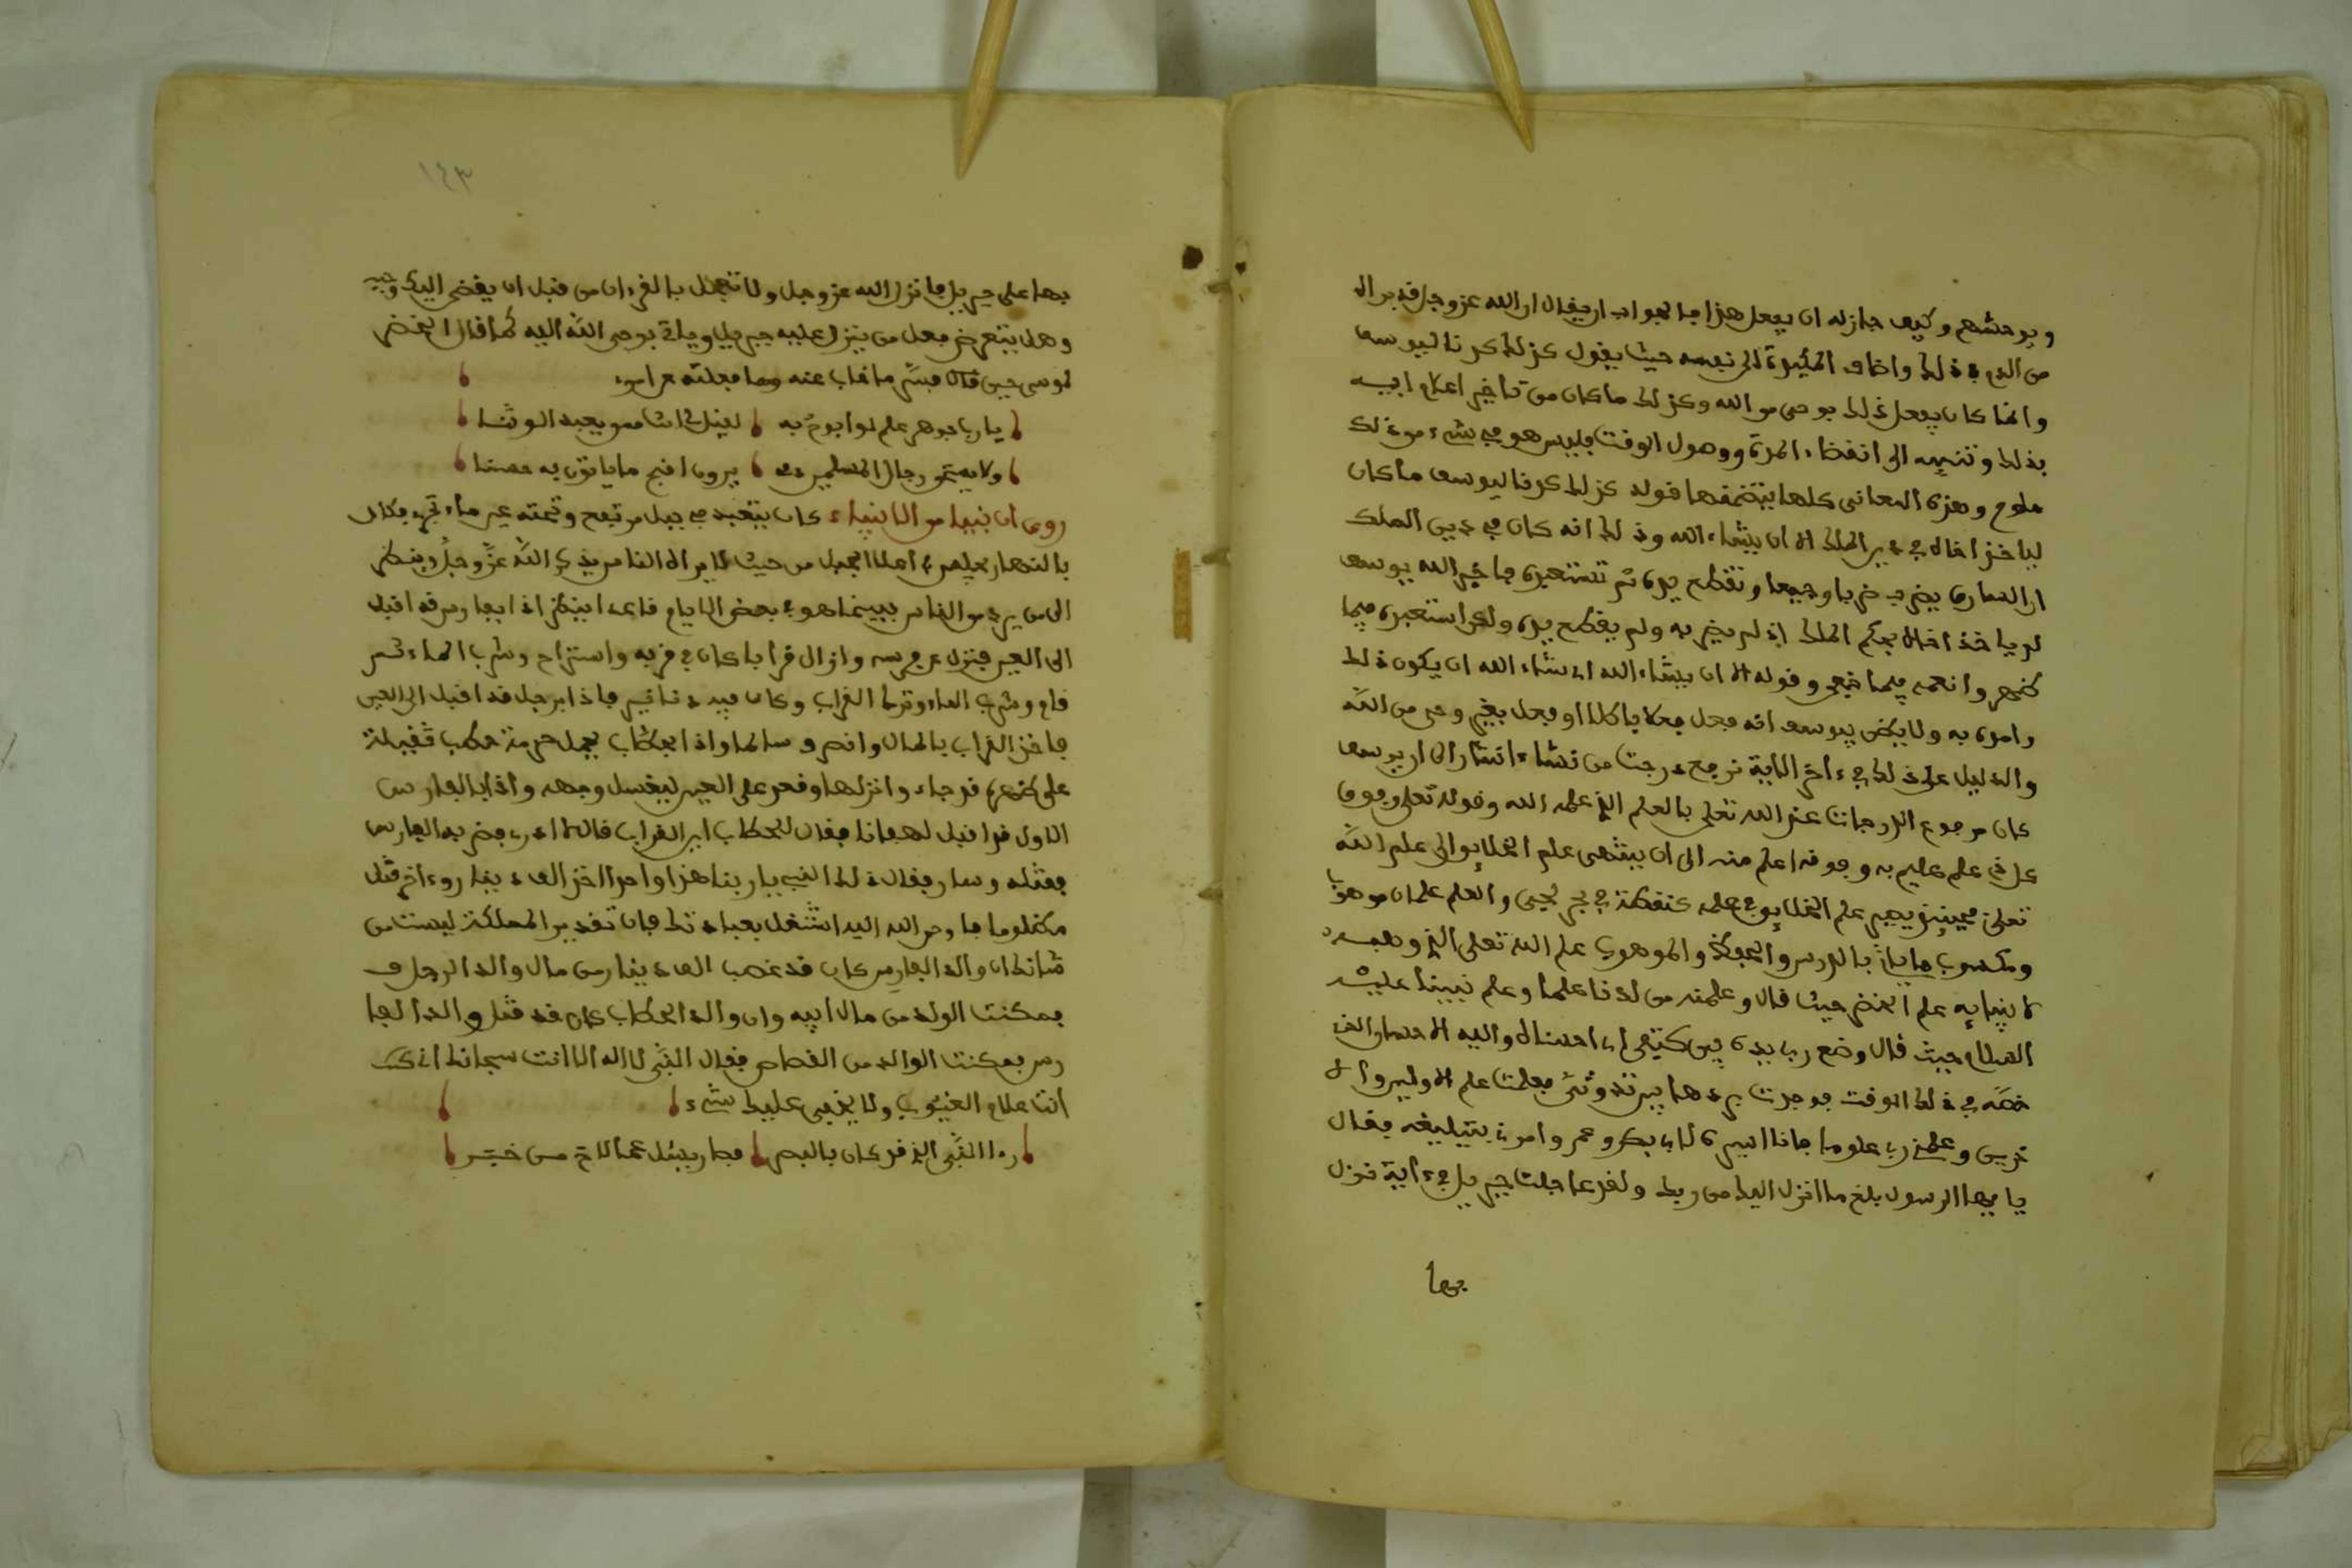 ويوحشهم وكيف جاز له ان يفعل هذا فالجواب ان يقال ان الله عز وجل قد برا
من الدم في ذلك واضاف المكيدة الى نفسه حيث يقول كذلك كدنا ليوسف
وانما كان يفعل ذلك بوحي من الله وكذلك ما كان من تاخير اعلام ابيه
بذلك وتنبيه الى انقضاء المدة ووصول الوقت فليس هو في شيء من ذلك
ملوم وهذه المعاني كلها يتضمنها قوله كذلك كدنا ليوسف ما كان
لياخذ اخاه في دين الملك الا ان يشاء الله وذلك انه كان في دين الملك
ان السارق يضرب ضربا وجيعا وتقطع يده ثم تستعبده فاخبر الله يوسف
لم ياخذ اخاه بحكم الملك اذ لم يضربه ولم يقطع يده ولا استعبده فيما
ظهر وانعم فيما خفي وقوله الا ان يشاء الله اي شاء الله ان يكون ذلك
وامره به ولا يظن بيوسف انه فعل فعلا باطلا او فعل بغير وحي من الله
والدليل على ذلك في ءاخر الاية نرفع درجت من نشاء اشار الى ان يوسف
كان مرفوع الدرجات عند الله تعلى بالعلم الذي علمه الله وقوله تعلى وفوق
كل ذي علم عليم به وفوقه اعلم منه الى ان ينتهي علم الخلايق الى علم الله
تعلى فحينئذ يصير علم الخلايق في علمه كنقطة في بحر لجي والعلم علمان موهوب
ومكسوب فالمكسوب ياتي بالدرس والحفظ والموهوب علم الله تعلى الذي وهبه
لانبيايه علم الخضر حيث قال وعلمنه من لدنا علما وعلم نبينا عليه
السلام حيث قال وضع رب يده بين كتفي اي احسانه واليه الاحسان الذي
خصه في ذلك الوقت فوجدت بردها بين ثدوتي فعلمت علم الاولين والا
خرين وعلمني ربي علوما فانا اسره لابي بكر وعمر وامرني بتبليغه فقال
يا يها الرسول بلغ ما انزل اليك من ربك ولقد عاجلت جبريل في ءاية نزل
بها

١٤٣
بها على جبريل فانزل الله عز وجل ولا تعجل بالقرءان من قبل ان يقضى اليك وحيه
وهل يتعرض فعل من ينزل عليه جبريل وياتي بوحي الله اليه كما قال الخضر
لموسى حين قال فسر ما غاب عنه وما فعلته عن امري
يا رب جوهر علم لو ابوح به لقيل لي انت ممن يعبد الوثنا
ولاستحل رجال المسلمين دمي يرون اقبح ما ياتون به حسنا
روي ان نبيا من الانبياء كان يتعبد في جبل مرتفع وتحته عين ماء تجري فكان
بالنهار يجلس في اعلا الجبل من حيث لا يراه الناس يذكر الله عز وجل وينظر
الى من يرد من الناس فبينما هو في بعض الايام قاعدا ينظر اذا بفارس قد اقبل
الى العين فنزل عن فرسه وازال قرابا كان في قربه واستراح وشرب الماء ثم
قام وشرب الماء وترك القراب وكان فيه دنانير فاذا برجل قد اقبل الى العين
فاخذ القراب بالمال وانصرف سالما واذا بحطاب يحمل حزمة حطب ثقيلة
على ظهره فجاء وانزلها وقعد على العين ليغسل وجهه واذا بالفارس
الاول قد اقبل لهفانا فقال للحطاب اين القراب قال لا ادري فضربه الفارس
فقتله وسار فقال ذلك النبي يا ربنا هذا واحد اخذ الف دينار وءاخر قتل
مظلوما فاوحى الله اليه اشتغل بعبادتك فان تدبير المملكة ليست من
شانك ان والد الفارس كان قد غصب الف دينار من مال والد الرجل
فمكنت الولد من مال ابيه وان والد الحطاب كان قد قتل والد الفا
رس فمكنت الوالد من القصاص فقال النبي لا اله الا انت سبحانك انك
انت علام الغيوب ولا يخفى عليك شيء
رءا النبي الذي قد كان بالبصر فصار يسئل عما لاح من خبر